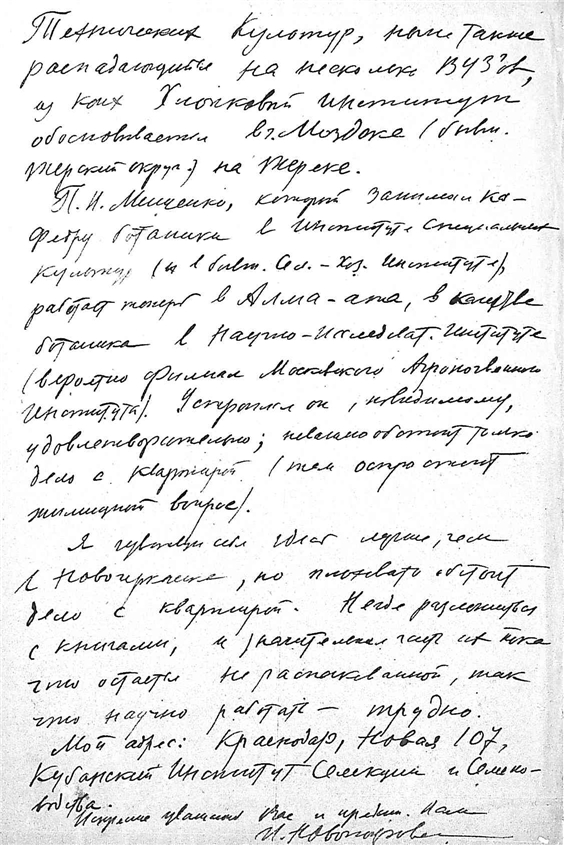 Технических Культур, ныне также
распадающийся на несколько ВУЗ'ов,
из коих Хлопковый институт
обосновывается в г. Моздоке (бывш.
Терский округ.) на Тереке.
П. И. Мищенко, который занимал ка-
федру ботаники в институте специальных
культур (и в бывш. Сел.-Хоз. Институте),
работает теперь в Алма-ата, в качестве
ботаника в Научно-Исследоват. Институте
(вероятно филиал Московского Агропочвенного
Института). Устроился он, повидимому,
удовлетворительно; неважно обстоит только
дело с квартирой (там остро стоит
жилищной вопрос).
Я чувствую себя здесь лучше, чем
в Новочеркасске, но плоховато обстоит
дело с квартирой. Негде разложиться
с книгами, и значительная часть их пока
что остается не распакованной, так
что научно работать — трудно.
Мой адрес: Краснодар, Новая 107,
Кубанский Институт Селекции и Семено-
водства.
Искренне уважающий Вас и
И. Новопокровский